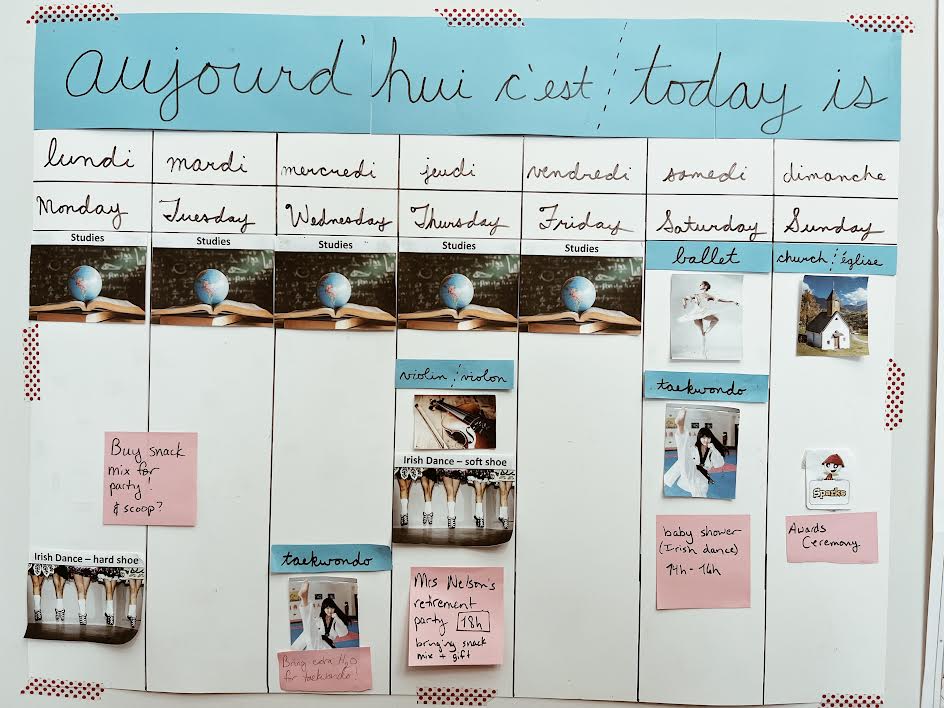 aujourd'hui c'est / today is
lundi mardi mercredi jeudi vendredi samedi dimanche
Monday Tuesday Wednesday Thursday Friday Saturday Sunday
Studies Studies Studies Studies Studies
ballet
church / église
violin / violon
taekwondo
Buy snack
mix for
party!
& scoop?
Irish Dance – soft shoe
Sparks
baby shower
(Irish dance)
14h - 16h
Awards
Ceremony
Irish Dance – hard shoe
taekwondo
Bring extra H2O
for taekwondo!
Mrs Nelson's
retirement
party 18h
bringing snack
mix + gift